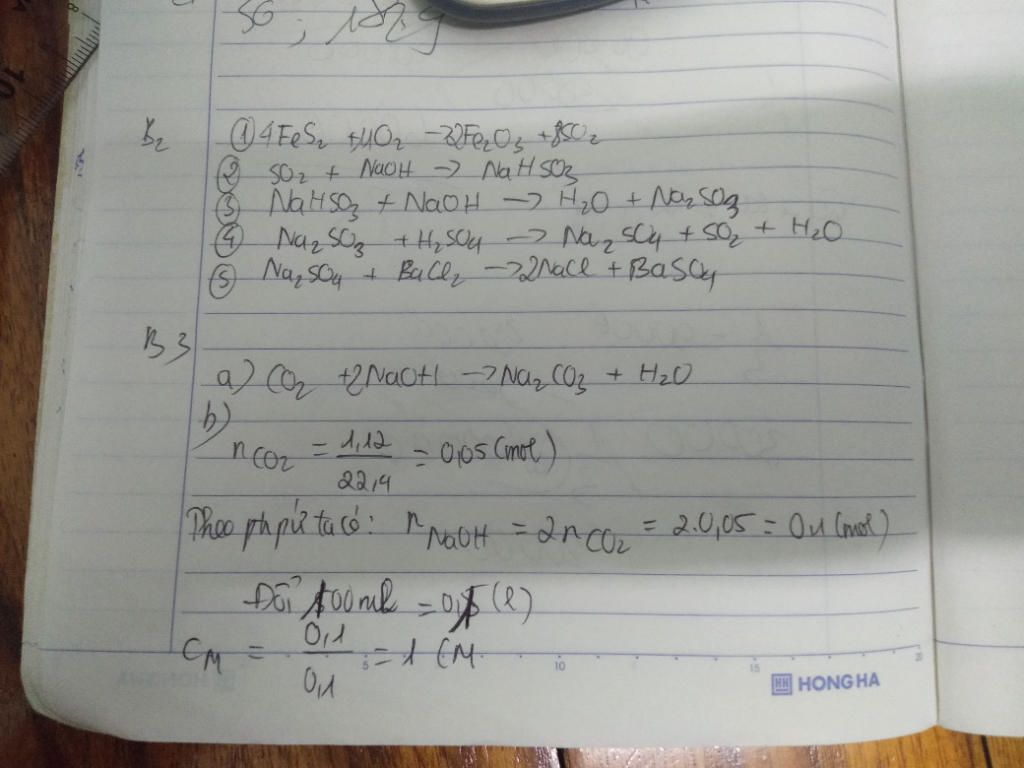 56 ;
B2 ① 4FeS2 + 11O2 → 2Fe2O3 + 8SO2
② SO2 + NaOH → NaHSO3
③ NaHSO3 + NaOH → H2O + Na2SO3
④ Na2SO3 + H2SO4 → Na2SO4 + SO2 + H2O
⑤ Na2SO4 + BaCl2 → 2NaCl + BaSO4
B3
a) CO2 + 2NaOH → Na2CO3 + H2O
b)
nCO2 = 1,12/22,4 = 0,05 (mol)
Theo ptpứ ta có: nNaOH = 2nCO2 = 2.0,05 = 0,1 (mol)
Đổi 100ml = 0,1 (l)
CM = 0,1/0,1 = 1 CM
5 10 15 20
HONG HA
10